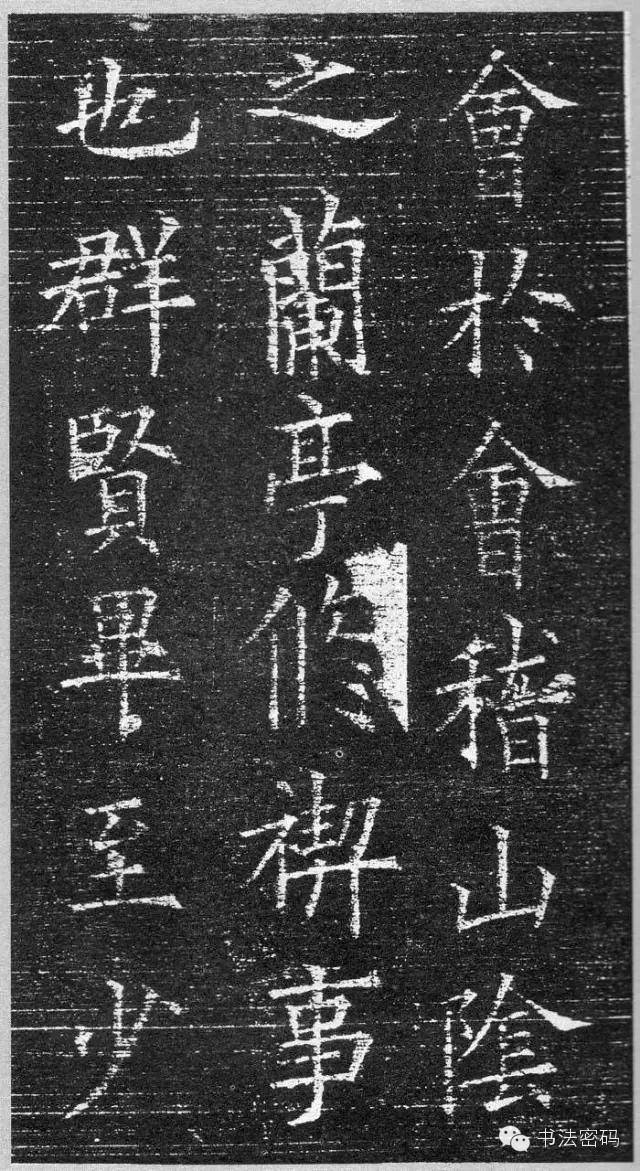 會於會稽山陰
之蘭亭修禊事
也群賢畢至少
书法密码